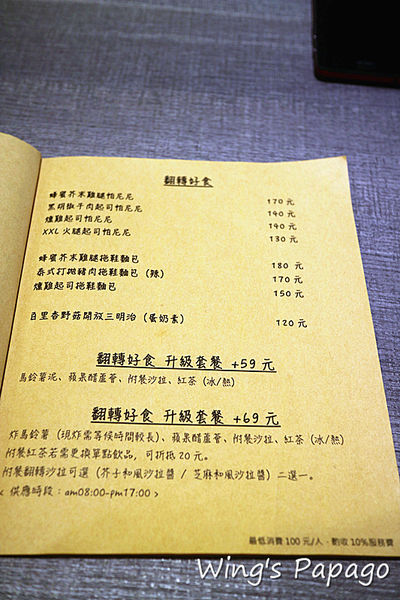 翻轉好食
蜂蜜芥末雞腿帕尼尼 170 元
黑胡椒牛肉起司帕尼尼 190 元
燻雞起司帕尼尼 190 元
XXL 火腿起司帕尼尼 130 元
蜂蜜芥末雞腿拖鞋麵包 180 元
泰式打拋豬肉拖鞋麵包 (辣) 170 元
燻雞起司拖鞋麵包 150 元
百里香野菇開放三明治 (蛋奶素) 120 元
翻轉好食 升級套餐 +59 元
馬鈴薯泥、蘋果醋蘆薈、附餐沙拉、紅茶 (冰/熱)
翻轉好食 升級套餐 +69 元
炸馬鈴薯 (現炸需等候時間較長)、蘋果醋蘆薈、附餐沙拉、紅茶 (冰/熱)
附餐紅茶若需更換單點飲品，可折抵 20 元。
附餐翻轉沙拉可選 (芥子和風沙拉醬 / 芝麻和風沙拉醬) 二選一。
< 供應時段：am08:00-pm17:00 >
最低消費 100 元/人．酌收 10%服務費
Wing's Papago